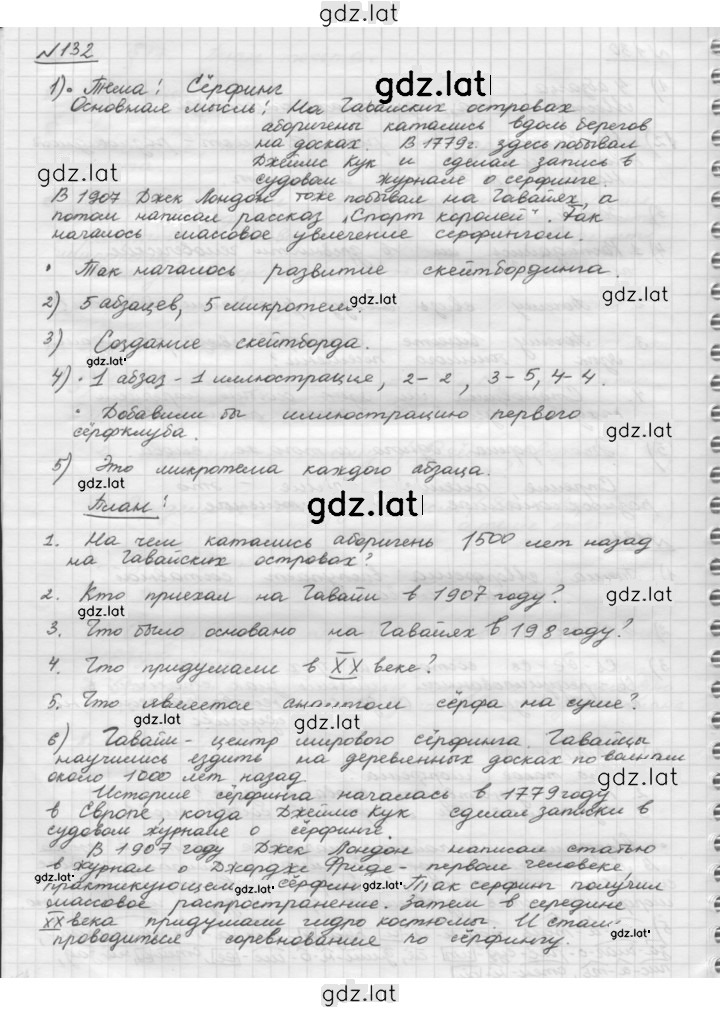 gdz.lat
№132
1)• Тема: Сёрфинг
gdz.lat
Основная мысль: На Гавайских островах
аборигены катались вдоль берегов
на досках. В 1779г. здесь побывал
Джеймс Кук и сделал запись в
gdz.lat
судовом журнале о сёрфинге.
В 1907 Джек Лондон тоже побывал на Гавайях, а
потом написал рассказ „Спорт королей". Так
началось массовое увлечение сёрфингом.
• Так началось развитие скейтбординга.
gdz.lat
2) 5 абзацев, 5 микротем.
gdz.lat
3) Создание скейтборда.
gdz.lat
4) • 1 абзаз - 1 иллюстрация, 2 – 2, 3 – 5, 4 – 4.
• Добавили бы иллюстрацию первого
сёрфклуба.
gdz.lat
5) Это микротема каждого абзаца.
gdz.lat
План:
gdz.lat
1. На чем катались аборигены 1500 лет назад
на Гавайских островах?
2. Кто приехал на Гавайи в 1907 году?
gdz.lat
gdz.lat
3. Что было основано на Гавайях в 198 году?
4. Что придумали в XX веке?
5. Что является аналогом сёрфа на суше?
gdz.lat
gdz.lat
6) Гавайи - центр мирового сёрфинга. Гавайцы
научились ездить на деревленных досках по волнам
около 1000 лет назад.
gdz.lat
Историе сёрфинга началась в 1779 году
в Европе, когда Джеймс Кук сделал записки в
судовом журнале о сёрфинге.
В 1907 году Джек Лондон написал статью
в журнал о Джордже Фриде - первом человеке,
gdz.lat
практикующем сёрфин
gdz.lat
gdz.lat
Так серфинг получил
массовое распространение. Затем в середине
XX века придумали гидро костюмы. И стали
gdz.lat
проводиться соревнование по сёрфингу.
gdz.lat